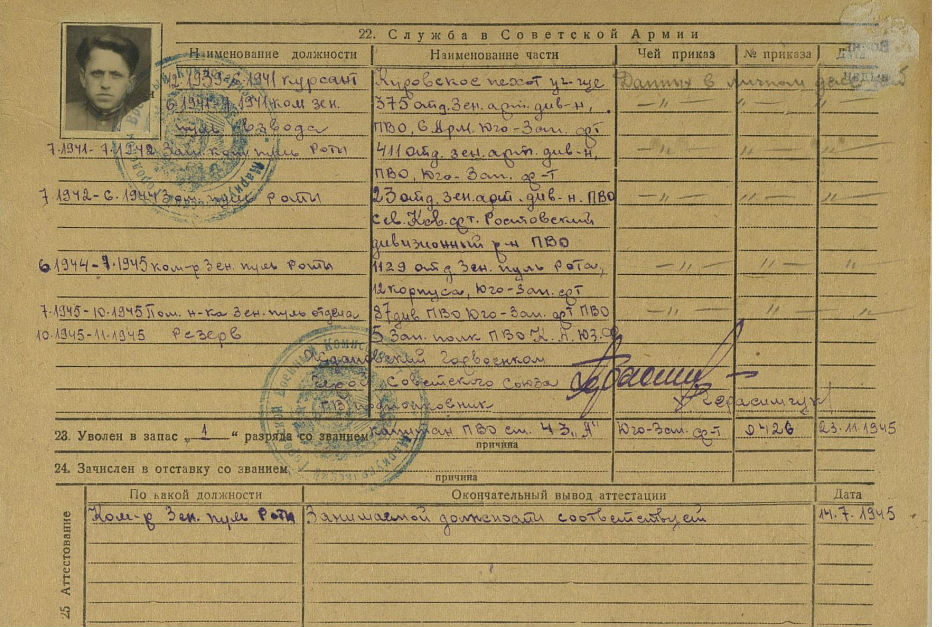 22. Служба в Советской Армии
Наименование должности Наименование части Чей приказ № приказа
12.1939-6.1941 курсант пехот уч-ще Данных в личном деле
6.1941-7.1941 ком зен. 375 отд. Зен. арт. див-н,
пуль взвода ПВО, 6 Арм. Юго-Зап. фт
7.1941-7.1942 Зам. ком пуль Роты 411 отд. зен. арт. див-н,
ПВО, Юго-Зап. ф-т
7.1942-6.1944 Зен. пуль роты 23 отд. Зен. арт. див-н. ПВО
Сев. Кав. фт. Ростовский
дивизионный р-н ПВО
6.1944-7.1945 ком-р Зен. пуль Роты 1129 отд Зен. пуль Рота,
12 корпуса, Юго-Зап. фт
7.1945-10.1945 Пом. н-ка Зен. пуль отдела 87 див ПВО Юго-Зап. фт ПВО
10.1945-11.1945 Резерв 5 Зап. полк ПВО
Горвоенком
Герой Советского Союза
подполковник /Герасимчук/
23. Уволен в запас „ 1 “ разряда со званием капитан ПВО ст. 43 „А“ Юго-Зап. ф-т 0426 23.11.1945
причина
24. Зачислен в отставку со званием
причина
25 Аттестование
По какой должности Окончательный вывод аттестации Дата
Ком-р Зен. пуль Роты Занимаемой должности соответствует 14.7.1945